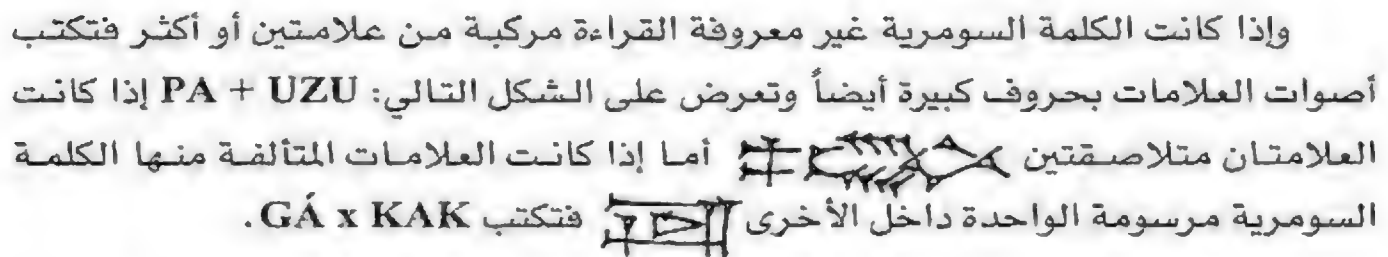 وإذا كانت الكلمة السومرية غير معروفة القراءة مركبة من علامتين أو أكثر فتكتب
أصوات العلامات بحروف كبيرة أيضاً وتعرض على الشكل التالي: PA + UZU إذا كانت
العلامتان متلاصقتين أما إذا كانت العلامات المتألفة منها الكلمة
السومرية مرسومة الواحدة داخل الأخرى فتكتب GÁ x KAK .